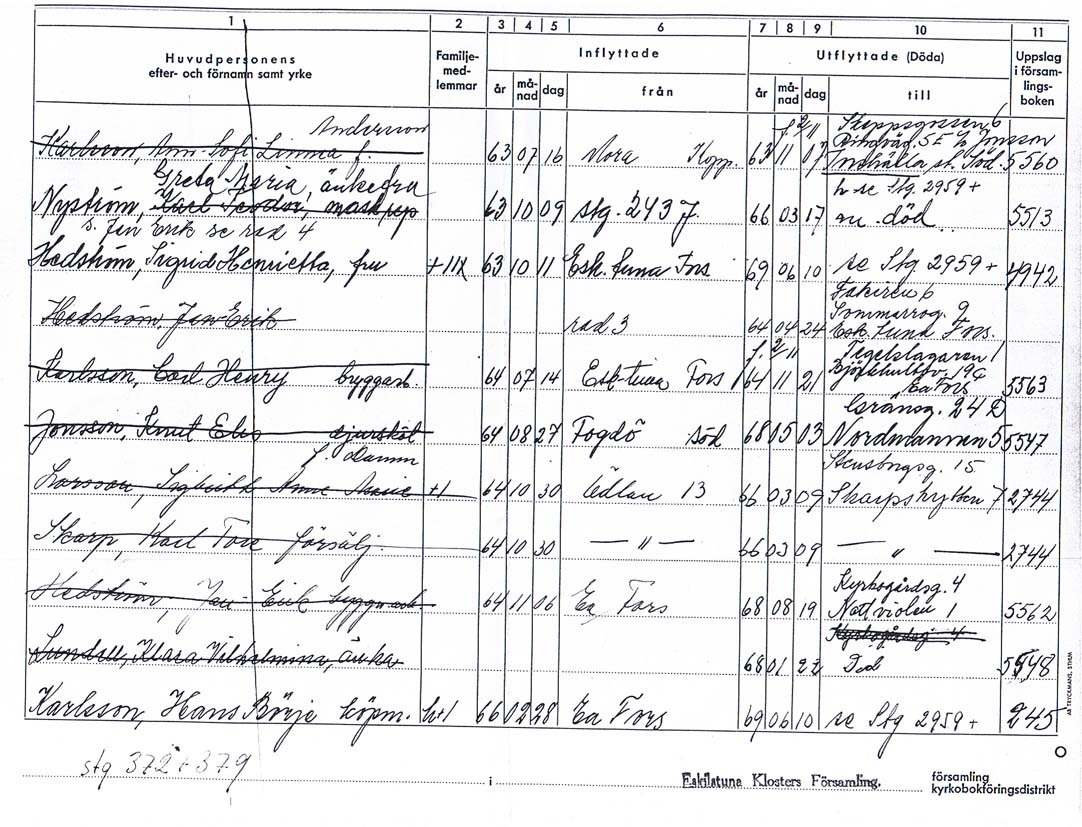 1 2 3 4 5 6 7 8 9 10 11
Huvudpersonens
efter- och förnamn samt yrke
Familje-
med-
lemmar
Inflyttade
Utflyttade (Döda)
Uppslag
i försam-
lings-
boken
år må-
nad dag från år må-
nad dag till
Andersson
Karlsson, Ann-Sofi Linnea f. 63 07 16 Mora Kopp. 63 11 07 5560
Greta Maria, änkefru
Nyström, Karl Teodor, 63 10 09 stg. 243 J. 66 03 17 h se Stg. 2959 +
död 5513
s. Jan Erik se rad 4
Hedström, Sigrid Henrietta, fru 63 10 11 Esk.tuna Fors 69 06 10 se Stg 2959 + 4942
Hedström, Jan Erik rad 3 64 04 24 Fakiren 6
Sommarrog. 9
Esk.tuna Fors.
f. 2/11 Tegelslagaren 1
Karlsson, Carl Henry byggarb. 64 07 14 Esk-tuna Fors 64 11 21 Ea Fors 5563
Gränsg. 24
Jonsson, Knut djursköt 64 08 27 Fogdö Söd 68 05 03 Nordmannen 5 5547
f. Damm
Larsson, Anna Marie +1 64 10 30 13 66 03 09 15
Skarpskytten 7 2744
Skarp, Karl Tore försälj. 64 10 30 — " — 66 03 09 — " — 2744
Kyrkogårdsg. 4
Hedström, Jan Erik byggnarb 64 11 06 Ea Fors 68 08 19 Nattviolen 1 5562
Kyrkogårdsg 4
Lundell, Klara Vilhelmina, änka 68 01 22 Död 5548
Karlsson, Hans Börje köpm. h+1 66 02 28 Ea Fors 69 06 10 se Stg 2959 + 245
stg 372 + 379
i Eskilstuna Klosters Församling. församling
kyrkobokföringsdistrikt
AB TRYCKMANS, STHLM